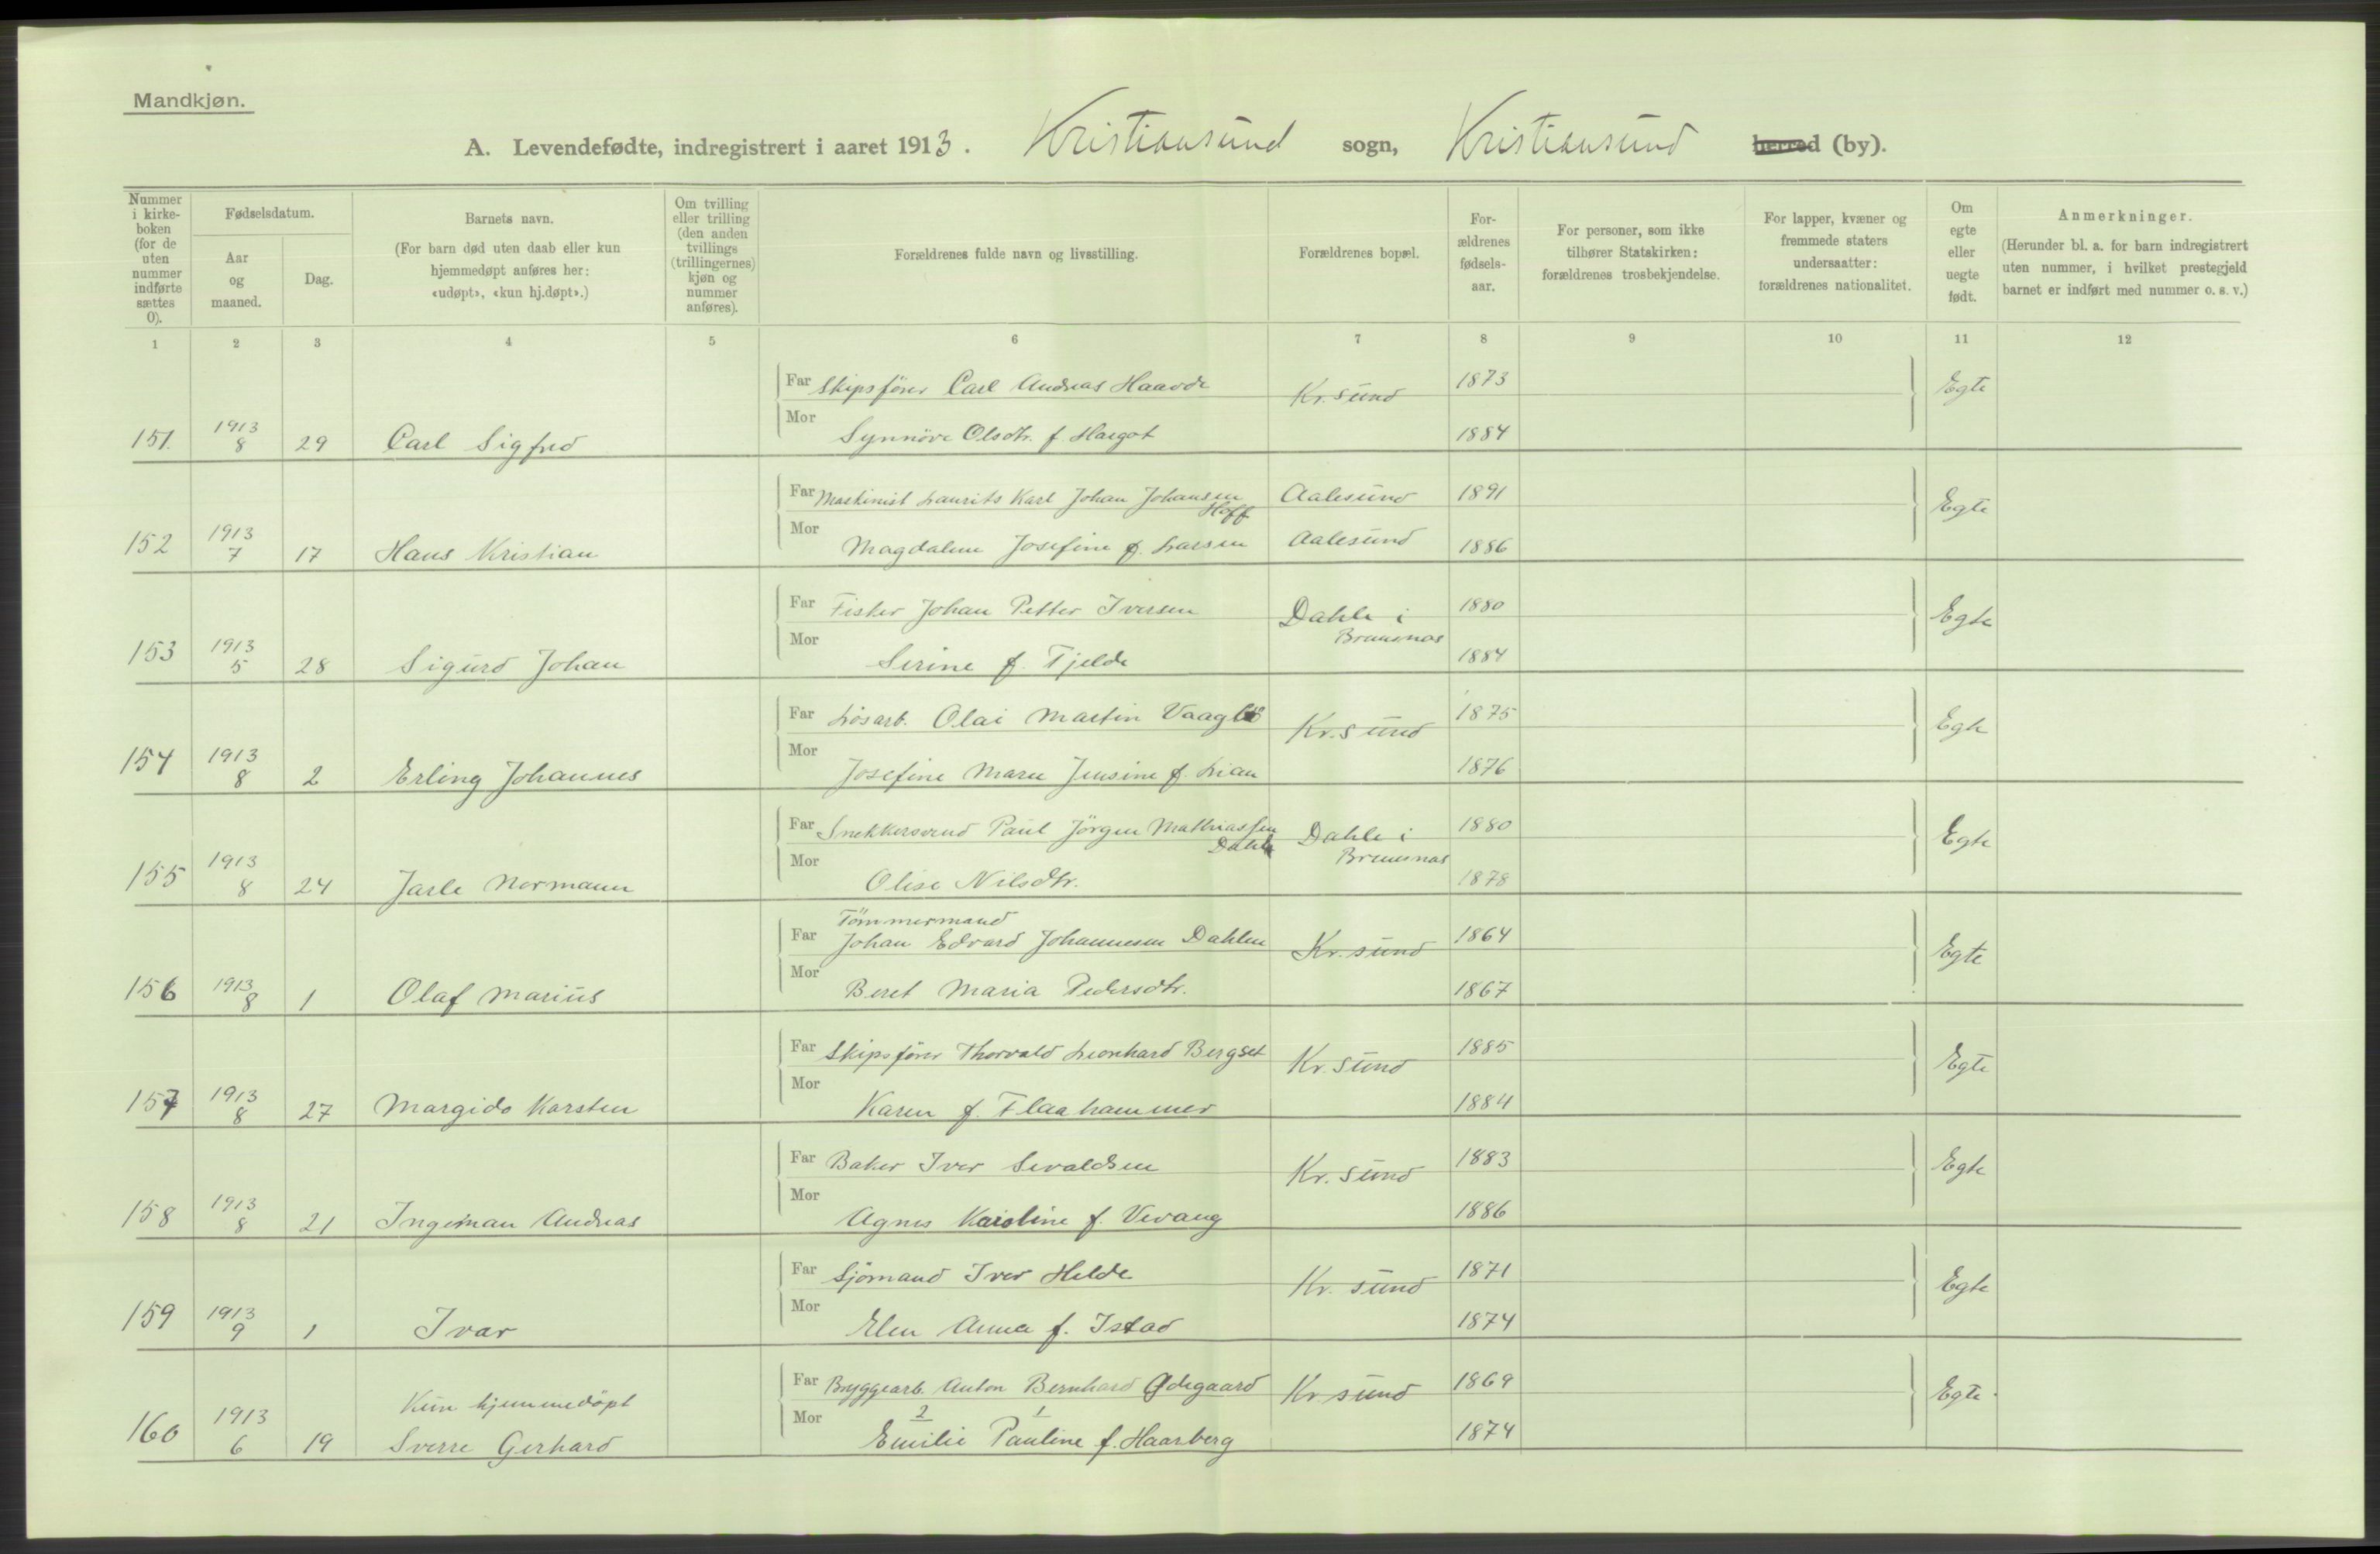 Mandkjøn.
A. Levendefødte, indregistrert i aaret 1913. Kristiansund sogn, Kristiansund herred (by).
Nummer i kirke-boken (for de uten nummer indførte sættes 0).
Fødselsdatum.
Aar og maaned.
Dag.
Barnets navn.
(For barn død uten daab eller kun hjemmedøpt anføres her: «udøpt», «kun hj.døpt».)
Om tvilling eller trilling (den anden tvillings (trillingernes) kjøn og nummer anføres).
Forældrenes fulde navn og livsstilling.
Forældrenes bopæl.
For-ældrenes fødsels-aar.
For personer, som ikke tilhører Statskirken: forældrenes trosbekjendelse.
For lapper, kvæner og fremmede staters undersaatter: forældrenes nationalitet.
Om egte eller uegte født.
Anmerkninger.
(Herunder bl. a. for barn indregistrert uten nummer, i hvilket prestegjeld barnet er indført med nummer o. s. v.)
1 2 3 4 5 6 7 8 9 10 11 12
Far Skipsfører Carl Andreas Haavde Kr.sund 1873 Egte
151. 1913 8 29 Carl Sigfred
Mor Synnöve Olsdtr. f 1884
Far Maskinist Laurits Karl Johan Johansen Hoff Aalesund 1891 Egte
152 1913 7 17 Hans Kristian
Mor Magdalene Josefine f. Larsen Aalesund 1886
Far Fisker Johan Petter Iversen Dahle i Bremsnas 1880 Egte
153 1913 5 28 Sigurd Johan
Mor Serine f. Tjelde 1884
Far Lösarb. Olai Martin Vaagbö Kr.sund 1875 Egte
154 1913 8 2 Erling Johannes
Mor Josefine Maren Jensine f. Lian 1876
Far Snekkersvend Paul Jörgen Mathiassen Dahle Dahle i Bremsnas 1880 Egte
155 1913 8 24 Jarle Normann
Mor Olise Nilsdtr. 1878
Far Tömmermand Johan Edvard Johannesen Dahlen Kr.sund 1864 Egte
156 1913 8 1 Olaf Marius
Mor Beret Maria Pedersdtr. 1867
Far Skipsförer Thorvald Leonhard Bergset Kr.sund 1885 Egte
157 1913 8 27 Margido Karsten
Mor Karen f. Flaahammer 1884
Far Baker Iver Sevaldsen Kr.sund 1883 Egte
158 1913 8 21 Ingeman Andreas
Mor Agnes Karoline f. Vevang 1886
Far Sjömand Iver Helde Kr.sund 1871 Egte
159 1913 9 1 Ivar
Mor Elen Anna f. Istad 1874
Far Bryggearb. Anton Bernhard Ødegaard Kr.sund 1869 Egte.
160 1913 6 19 Kun hjemmedöpt Sverre Gerhard
Mor 2 1
Emilie Pauline f. Haarberg 1874